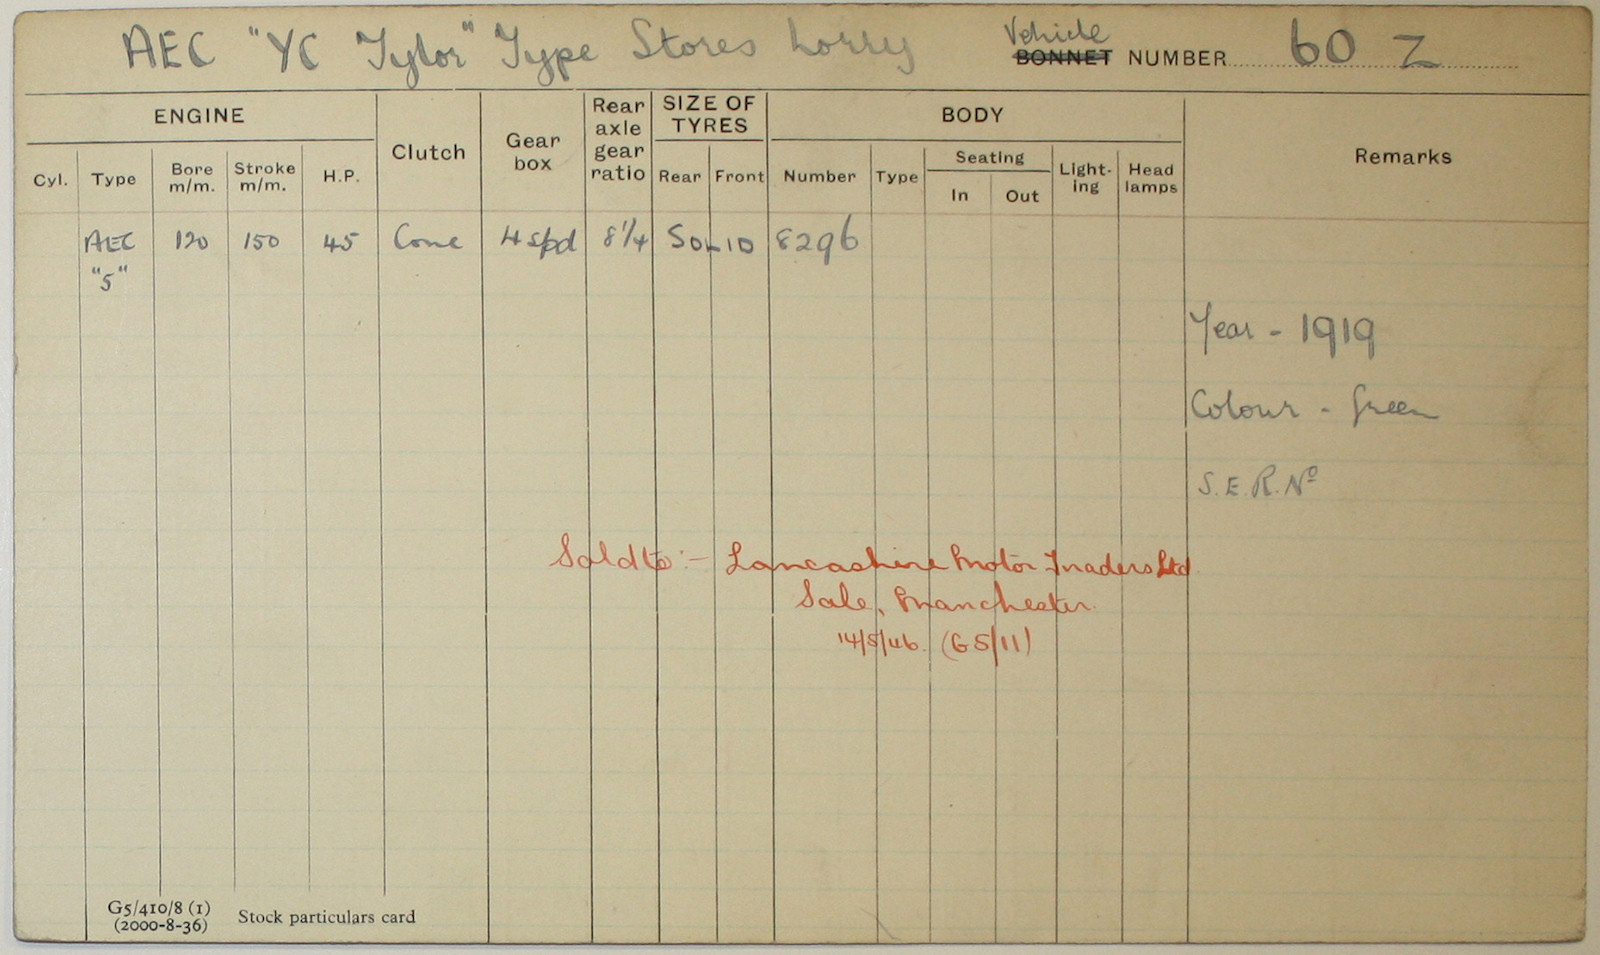 AEC "YC Tylor" Type Stores Lorry
Vehicle
BONNET NUMBER 60 Z
ENGINE
Clutch
Gear box
Rear axle gear ratio
SIZE OF TYRES
BODY
Remarks
Cyl. Type Bore m/m. Stroke m/m. H.P.
Rear Front Number Type Seating Light-ing Head lamps
In Out
AEC "5" 120 150 45 Cone 4 spd 8¼ SOLID 8296
Year - 1919
Colour - Green
S.E.R. Nº
Sold to :- Lancashire Motor Traders Ltd
Sale, Manchester.
14/5/46. (G5/11)
G5/410/8 (1)
(2000-8-36)
Stock particulars card